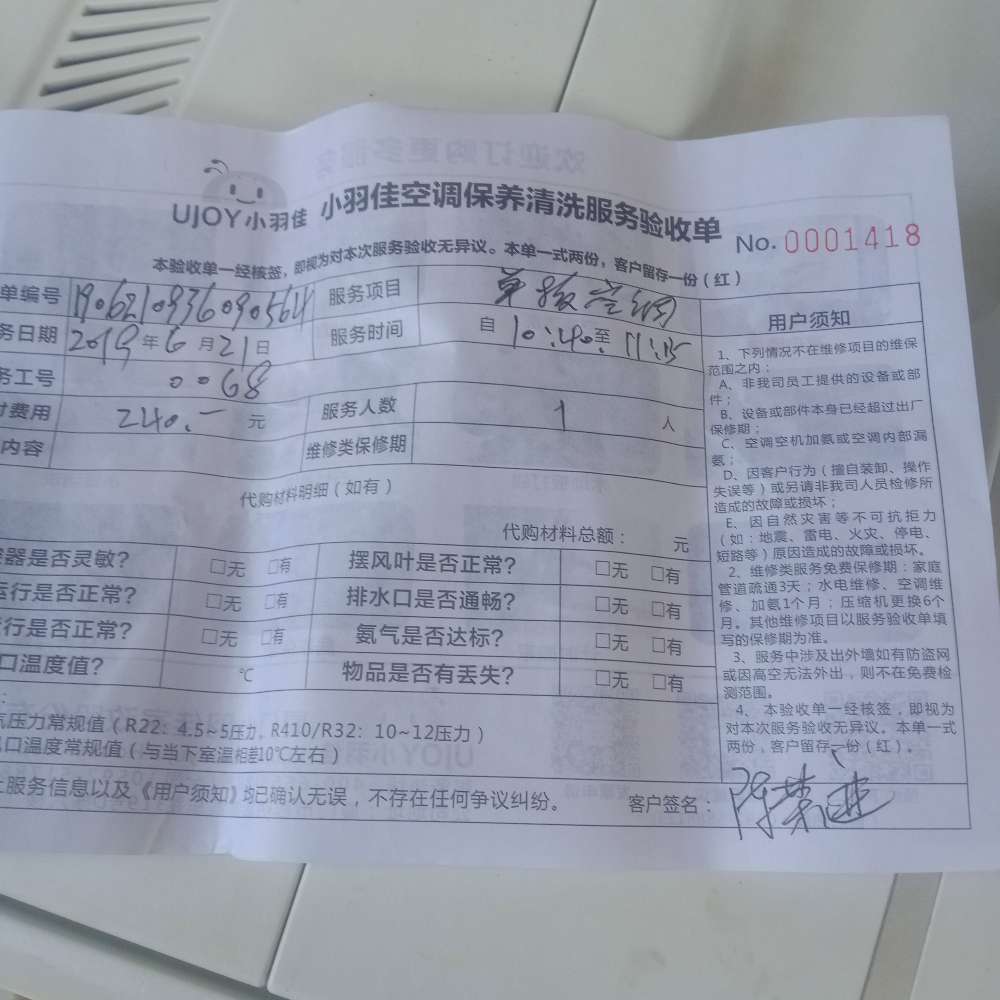 UJOY小羽佳 小羽佳空调保养清洗服务验收单 No. 0001418
本验收单一经核签，即视为对本次服务验收无异议。本单一式两份，客户留存一份（红）
单编号 服务项目
务日期 2019年6月21日 服务时间 自10:40至11:15
务工号 0068
付费用 240.- 元 服务人数 1 人
内容 维修类保修期
代购材料明细（如有）
代购材料总额： 元
器是否灵敏? □无 □有 摆风叶是否正常? □无 □有
运行是否正常? □无 □有 排水口是否通畅? □无 □有
行是否正常? □无 □有 氨气是否达标? □无 □有
口温度值? ℃ 物品是否有丢失? □无 □有
压力常规值（R22：4.5~5压力，R410/R32：10~12压力）
口温度常规值（与当下室温相差10℃左右）
服务信息以及《用户须知》均已确认无误，不存在任何争议纠纷。 客户签名：
用户须知
1、下列情况不在维修项目的维保
范围之内：
A、非我司员工提供的设备或部
件；
B、设备或部件本身已经超过出厂
保修期；
C、空调空机加氨或空调内部漏
氨；
D、因客户行为（擅自装卸、操作
失误等）或另请非我司人员检修所
造成的故障或损坏；
E、因自然灾害等不可抗拒力
（如：地震、雷电、火灾、停电、
短路等）原因造成的故障或损坏。
2、维修类服务免费保修期：家庭
管道疏通3天；水电维修、空调维
修、加氨1个月；压缩机更换6个
月。其他维修项目以服务验收单填
写的保修期为准。
3、服务中涉及出外墙如有防盗网
或因高空无法外出，则不在免费检
测范围。
4、本验收单一经核签，即视为
对本次服务验收无异议。本单一式
两份，客户留存一份（红）。